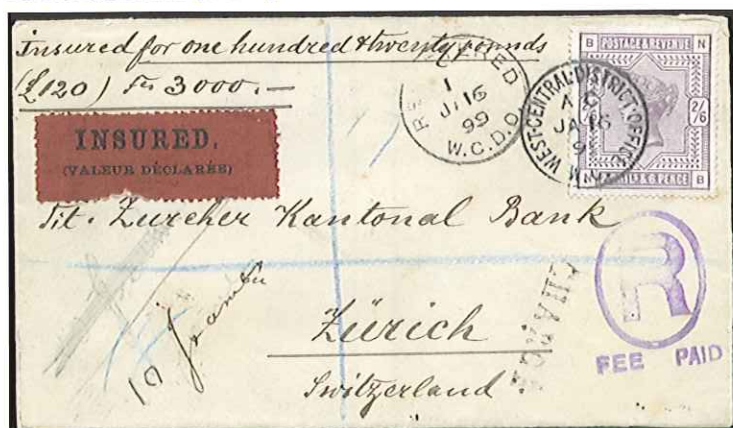 Insured for one hundred & twenty pounds
(£120) Frs 3000.—
INSURED.
(VALEUR DÉCLARÉE)
REGISTERED
1
JA 16
99
W.C.D.O.
WEST-CENTRAL-DISTRICT-OFFICE
JA 16
9
W.C.
B POSTAGE & REVENUE N
2/6
N & 6 PENCE B
Tit. Zurcher Kantonal Bank
in
Zürich
Switzerland
R
FEE PAID